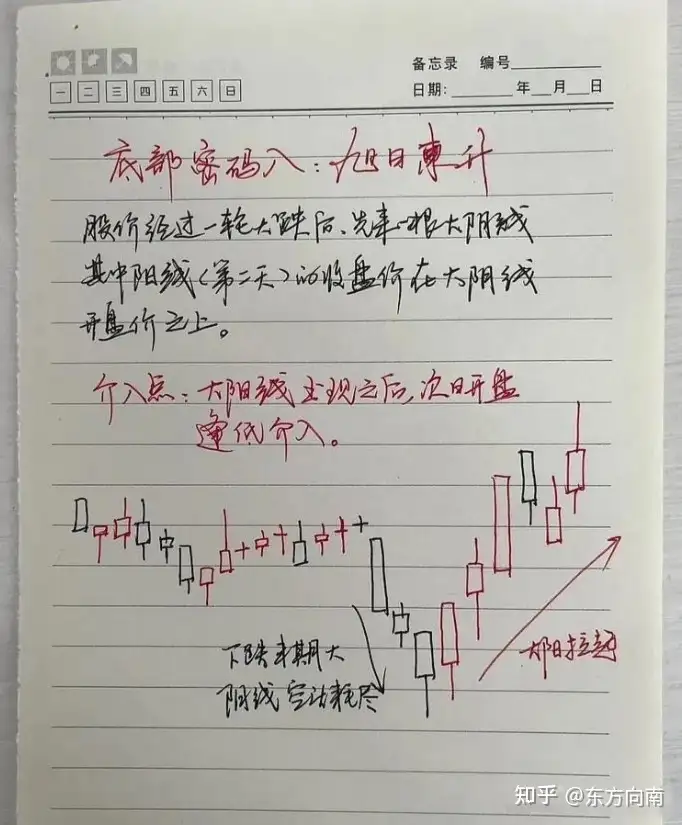 备忘录 编号
一 二 三 四 五 六 日
日期: 年 月 日
底部密码八：旭日東升
股价经过一轮大跌后、先来一根大阴线
其中阳线(第二天)的收盘价在大阴线
开盘价之上。
介入点：大阳线出现之后,次日开盘
逢低介入。
下跌末期大
阴线空头耗尽
拉起
知乎 @东方向南